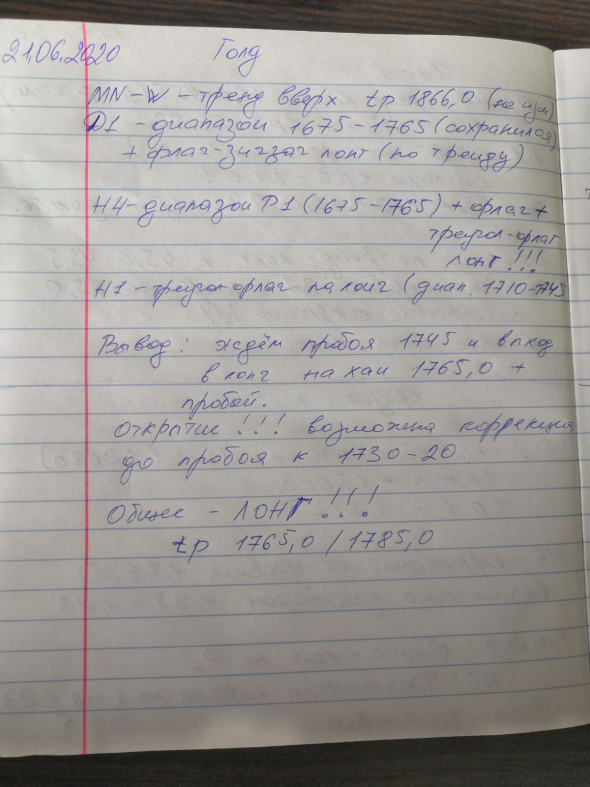 21.06.2020 Голд
MN-W - тренд вверх tp 1866,0 (не изм)
D1 - диапазон 1675-1765 (сохранился)
+ флаг-зигзаг лонг (по тренду)
H4 - диапазон D1 (1675-1765) + флаг +
треугол-флаг
лонг!!!
H1 - треугол-флаг на лонг (диап. 1710-1745
Вывод: ждём пробоя 1745 и вход
в лонг на хаи 1765,0 +
пробой.
Открытие!!! возможна коррекция
до пробоя к 1730-20.
Общее - ЛОНГ!!!
tp 1765,0 / 1785,0